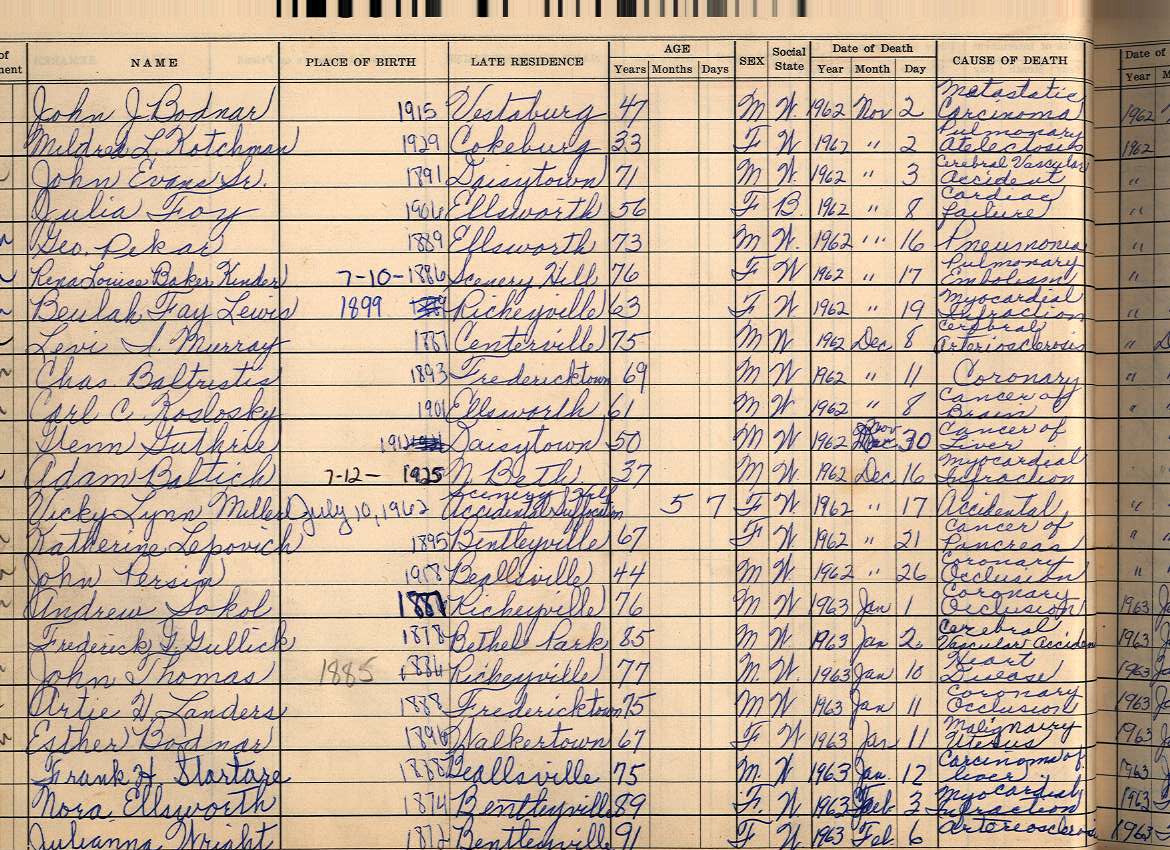 of NAME PLACE OF BIRTH LATE RESIDENCE AGE SEX Social State Date of Death CAUSE OF DEATH Date of
ment Years Months Days Year Month Day Year M
John J Bodnar 1915 Vestaburg 47 M W. 1962 Nov 2 Metastatic Carcinoma 1962
Mildred L. Kotchman 1929 Cokeburg 33 F W 1962 " 2 Pulmonary Atelectosis 1962
John Evans Sr. 1891 Daisytown 71 M W. 1962 " 3 Cerebral Vascular Accident "
Julia Foy 1906 Ellsworth 56 F B. 1962 " 8 Cardiac Failure "
Geo. Pekar 1889 Ellsworth 73 M W. 1962 " 16 Pneumonia "
Rena Louise Baker Kinder 7-10-1886 Scenery Hill 76 F W 1962 " 17 Pulmonary Embolism "
Beulah Fay Lewis 1899 Richeyville 63 F W 1962 " 19 Myocardial Infraction "
Levi S. Murray 1887 Centerville 75 M W 1962 Dec 8 Cerebral Arteriosclerosis " D
Chas. Baltristis 1893 Fredericktown 69 M W 1962 " 11 Coronary "
Carl C Koslosky 1901 Ellsworth 61 M W 1962 " 8 Cancer of Brain "
Glenn Guthrie 1912 Daisytown 50 M W 1962 Nov 30 Cancer of Liver
Adam Baltich 7-12- 1925 N. Beth 37 M W 1962 Dec 16 Myocardial Infraction
Vicky Lynn Miller July 10, 1962 Scenery Hill Accidental Suffocation 5 7 F W 1962 " 17 Accidental "
Katherine Lepovich 1895 Bentleyville 67 F W 1962 " 21 Cancer of Pancreas "
John Persin 1918 Beallsville 44 M W 1962 " 26 Coronary Occlusion "
Andrew Sokol Richeyville 76 M W 1963 Jan 1 Coronary Occlusion 1963
Frederick G. Gullick 1878 Bethel Park 85 M W 1963 Jan 2 Cerebral Vascular Acciden 1963
John Thomas 1885 1886 Richeyville 77 M. W. 1963 Jan 10 Heart Disease 1963
Artie H. Landers 1888 Fredericktown 75 M W 1963 Jan 11 Coronary Occlusion 1963
Esther Bodnar 1896 Walkertown 67 F W 1963 Jan 11 Malignancy Uterus 1963
Frank H. Startare 1888 Beallsville 75 M. W 1963 Jan. 12 Carcinoma of liver 1963
Nora Ellsworth 1874 Bentleyville 89 F. W 1963 Feb 3 Myocardial Infraction 1963
Julianna Wright 1872 Bentleyville 91 F W 1963 Feb. 6 Artereosclerosis 1963